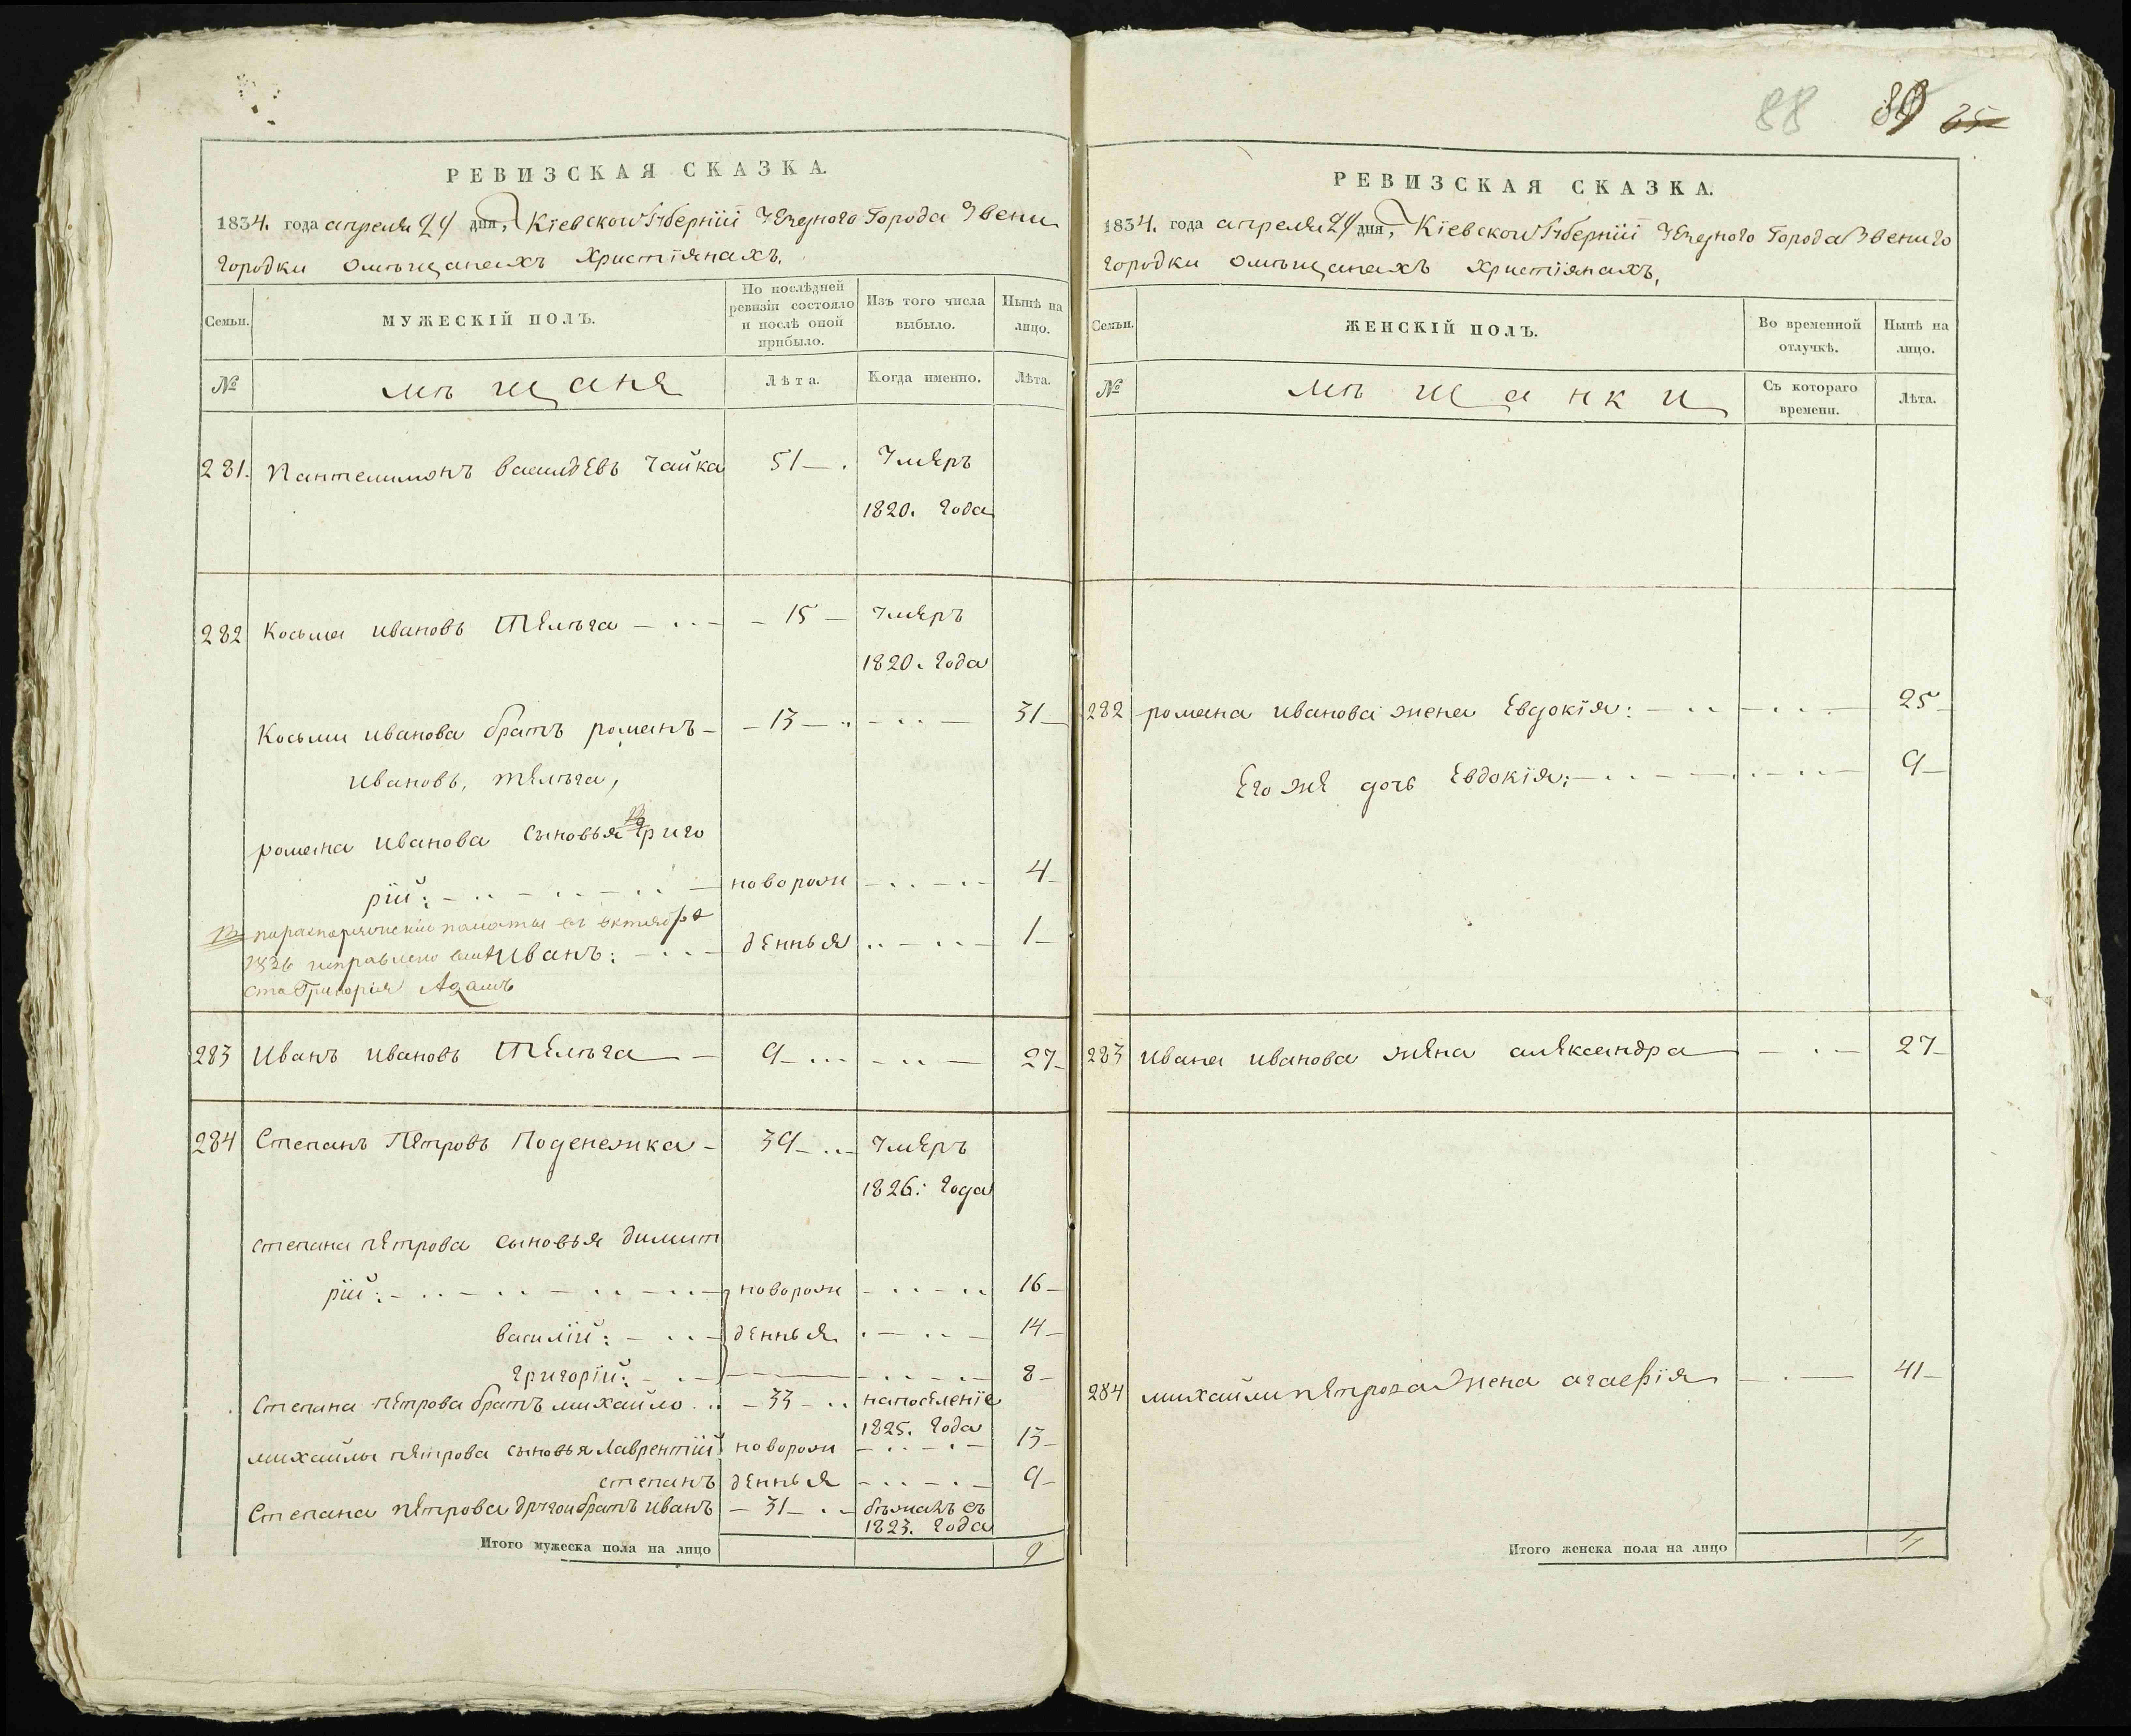 РЕВИЗСКАЯ СКАЗКА.
1834. года апреля 24 дня, Кіевской Губерніи Уезднаго Города Звени
городки омѣщанахъ христіянахъ,
Семьи.
МУЖЕСКІЙ ПОЛЪ.
По послѣдней ревизіи состояло и послѣ оной прибыло.
Изъ того числа выбыло.
Нынѣ на лицо.
№
мѣщаня
Лѣта.
Когда именно.
Лѣта.
281. Пантелимонъ васильевъ Чайка 51 Умеръ
1820. года
282 Косьма ивановъ Телѣга 15 Умеръ
1820. года
Косьми иванова братъ романъ 13 31
ивановъ, телѣга,
романа иванова сыновья Григо
рій: новорож 4
иванъ: денныя 1
1836 исправлено вмѣ
ста Григорія Адамъ
283 Иванъ ивановъ Телѣга 9 27
284 Степанъ Петровъ Поденежка 39 Умеръ
1826: года
степана петрова сыновья димит
рій: новорож 16
василій: денныя 14
григорій: 8
Степана петрова братъ михайло 33 напоселеніе
1825. года
михайлы петрова сыновья Лаврентій новорож 13
степанъ денныя 9
Степана петрова другой братъ иванъ 31 бѣжалъ съ
1823. года
Итого мужеска пола на лицо 9
88 89 85
РЕВИЗСКАЯ СКАЗКА.
1834. года апреля 24 дня, Кіевской Губерніи Уезднаго Города Звениго
городки омѣщанахъ христіянахъ,
Семьи.
ЖЕНСКІЙ ПОЛЪ.
Во временной отлучкѣ.
Нынѣ на лицо.
№
мѣщанки
Съ котораго времени.
Лѣта.
282 романа иванова жена Евдокія: 25
Его же дочь Евдокія: 9
283 ивана иванова жена александра 27
284 михайли петрова жена агафія 41
Итого женска пола на лицо